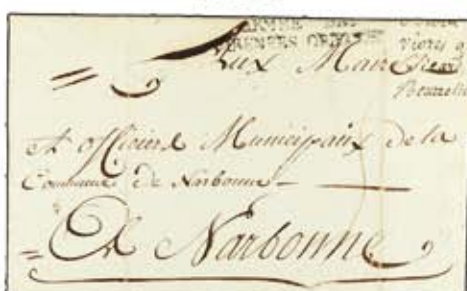 ARMÉE DES
PIRENEES ORIENT
Aux Maire
Et officiers Municipaux de la
Commune de Narbonne
A Narbonne